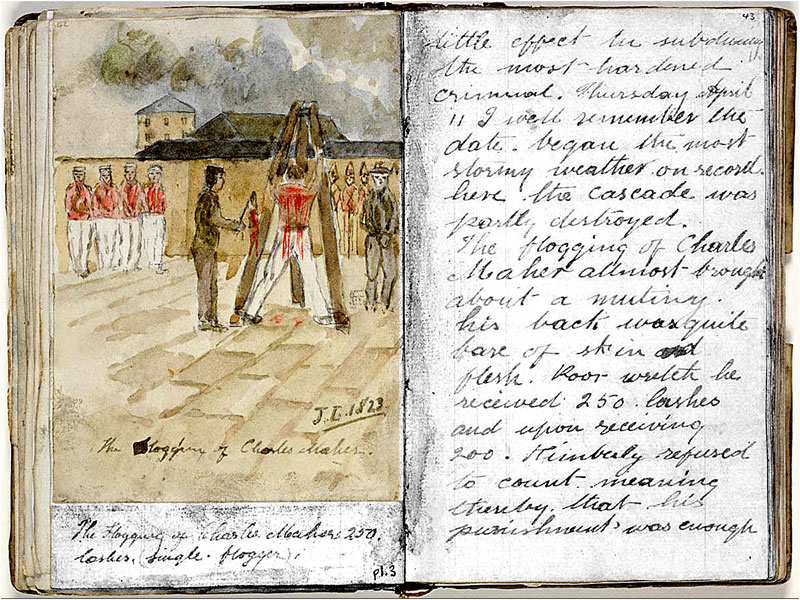 42
J.L. 1823
The Flogging of Charles Maher.
The Flogging of Charles Mahers 250.
lashes. Single. flogger.
pl.3
43
little effect in subduing
the most hardened
criminal. Thursday April
11 I well remember the
date. began the most
stormy weather on record.
here. the Cascade was
partly destroyed.
The flogging of Charles
Maher allmost brought
about a mutiny.
his back was quite
bare of skin and
flesh. Poor wretch he
received 250. lashes
and upon receiving
200. Kimberly refused
to count. meaning
thereby. that his
punishment was enough